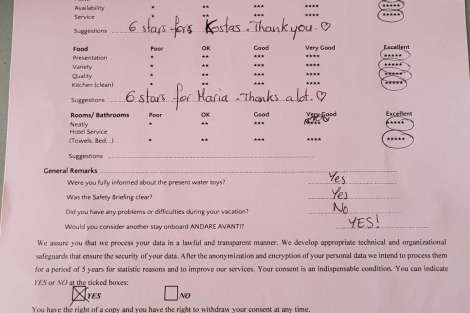 Availability * ** *** **** *****
Service * ** *** **** *****
Suggestions 6 stars for Kostas. Thank you. ♡
Food Poor OK Good Very Good Excellent
Presentation * ** *** **** *****
Variety * ** *** **** *****
Quality * ** *** **** *****
Kitchen (clean) * ** *** **** *****
Suggestions 6 stars for Maria. Thanks a lot. ♡
Rooms/ Bathrooms Poor OK Good Very Good Excellent
Neatly * ** *** *****
Hotel Service
(Towels, Bed,..) * ** *** **** *****
Suggestions
General Remarks
Were you fully informed about the present water toys? Yes
Was the Safety Briefing clear? Yes
Did you have any problems or difficulties during your vacation? No
Would you consider another stay onboard ANDARE AVANTI? YES!
We assure you that we process your data in a lawful and transparent manner. We develop appropriate technical and organizational
safeguards that ensure the security of your data. After the anonymization and encryption of your personal data we intend to process them
for a period of 5 years for statistic reasons and to improve our services. Your consent is an indispensable condition. You can indicate
YES or NO at the ticked boxes:
YES NO
You have the right of a copy and you have the right to withdraw your consent at any time.